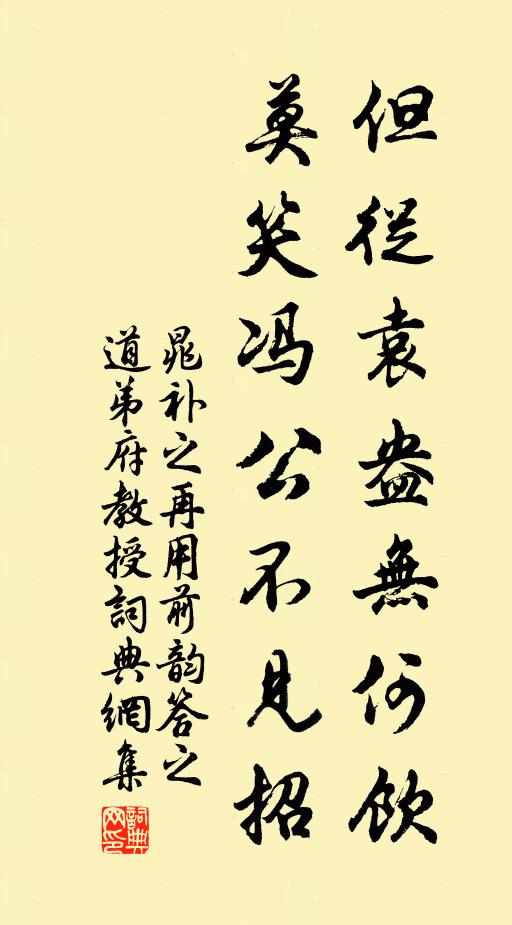 但從袁盎無何飲
莫笑冯公不見招
晁补之再用前韵答之
道弟府教授詞典網集
詞典
网印